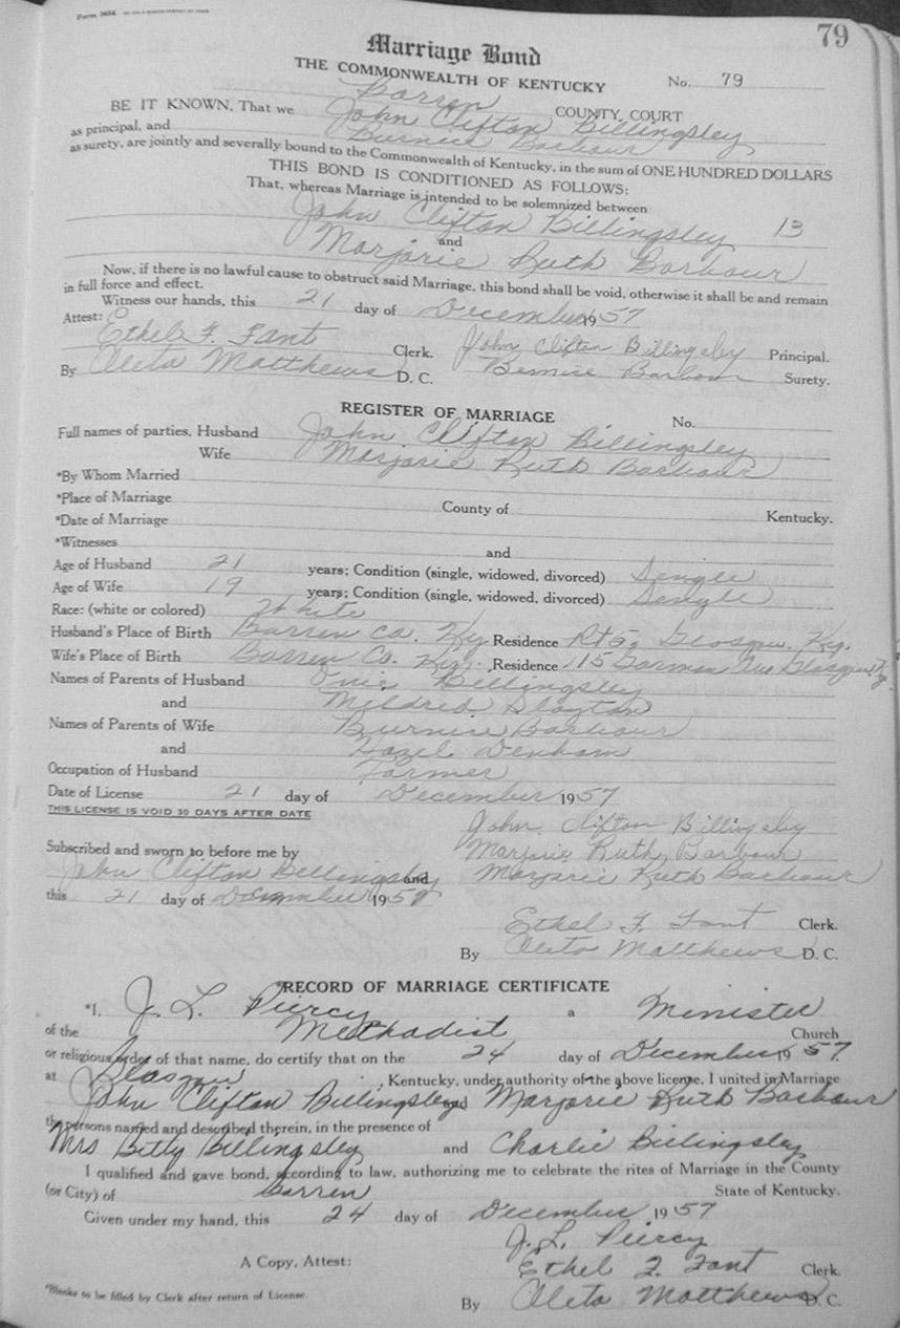 79
Marriage Bond
THE COMMONWEALTH OF KENTUCKY No. 79
Barren COUNTY COURT
BE IT KNOWN, That we John Clifton Billingsley
as principal, and Burnice Barbour
as surety, are jointly and severally bound to the Commonwealth of Kentucky, in the sum of ONE HUNDRED DOLLARS
THIS BOND IS CONDITIONED AS FOLLOWS:
That, whereas Marriage is intended to be solemnized between
John Clifton Billingsley 13
and
Marjorie Ruth Barbour
Now, if there is no lawful cause to obstruct said Marriage, this bond shall be void, otherwise it shall be and remain
in full force and effect.
Witness our hands, this 21 day of December 1957
Attest:
Ethel F. Fant Clerk. John Clifton Billingsley Principal.
By Oleta Matthews D. C. Bernice Barbour Surety.
REGISTER OF MARRIAGE No.
Full names of parties, Husband John Clifton Billingsley
Wife Marjorie Ruth Barbour
*By Whom Married
*Place of Marriage County of Kentucky.
*Date of Marriage
*Witnesses and
Age of Husband 21 years; Condition (single, widowed, divorced) Single
Age of Wife 19 years; Condition (single, widowed, divorced) Single
Race: (white or colored) White
Husband's Place of Birth Barren Co. Ky. Residence Rt 5, Glasgow, Ky.
Wife's Place of Birth Barren Co. Ky. Residence 115 Garman Ave Glasgow Ky.
Names of Parents of Husband Billingsley
and Mildred Slayton
Names of Parents of Wife Burnice Barbour
and Hazel Denham
Occupation of Husband Farmer
Date of License 21 day of December 1957
THIS LICENSE IS VOID 30 DAYS AFTER DATE
John Clifton Billingsley
Subscribed and sworn to before me by Marjorie Ruth Barbour
John Clifton Billingsley and Marjorie Ruth Barbour
this 21 day of December 1957
Ethel F. Fant Clerk.
By Oleta Matthews D. C.
RECORD OF MARRIAGE CERTIFICATE
*I, J. L. Piercy a Minister
of the Methodist Church
or religious order of that name, do certify that on the 24 day of December 1957
at Glasgow, Kentucky, under authority of the above license, I united in Marriage
John Clifton Billingsley and Marjorie Ruth Barbour
the persons named and described therein, in the presence of
Mrs Betty Billingsley and Charlie Billingsley
I qualified and gave bond, according to law, authorizing me to celebrate the rites of Marriage in the County
(or City) of Barren State of Kentucky.
Given under my hand, this 24 day of December, 1957
J. L. Piercy
A Copy, Attest: Ethel F. Fant Clerk.
*Blanks to be filled by Clerk after return of License.
By Oleta Matthews D. C.